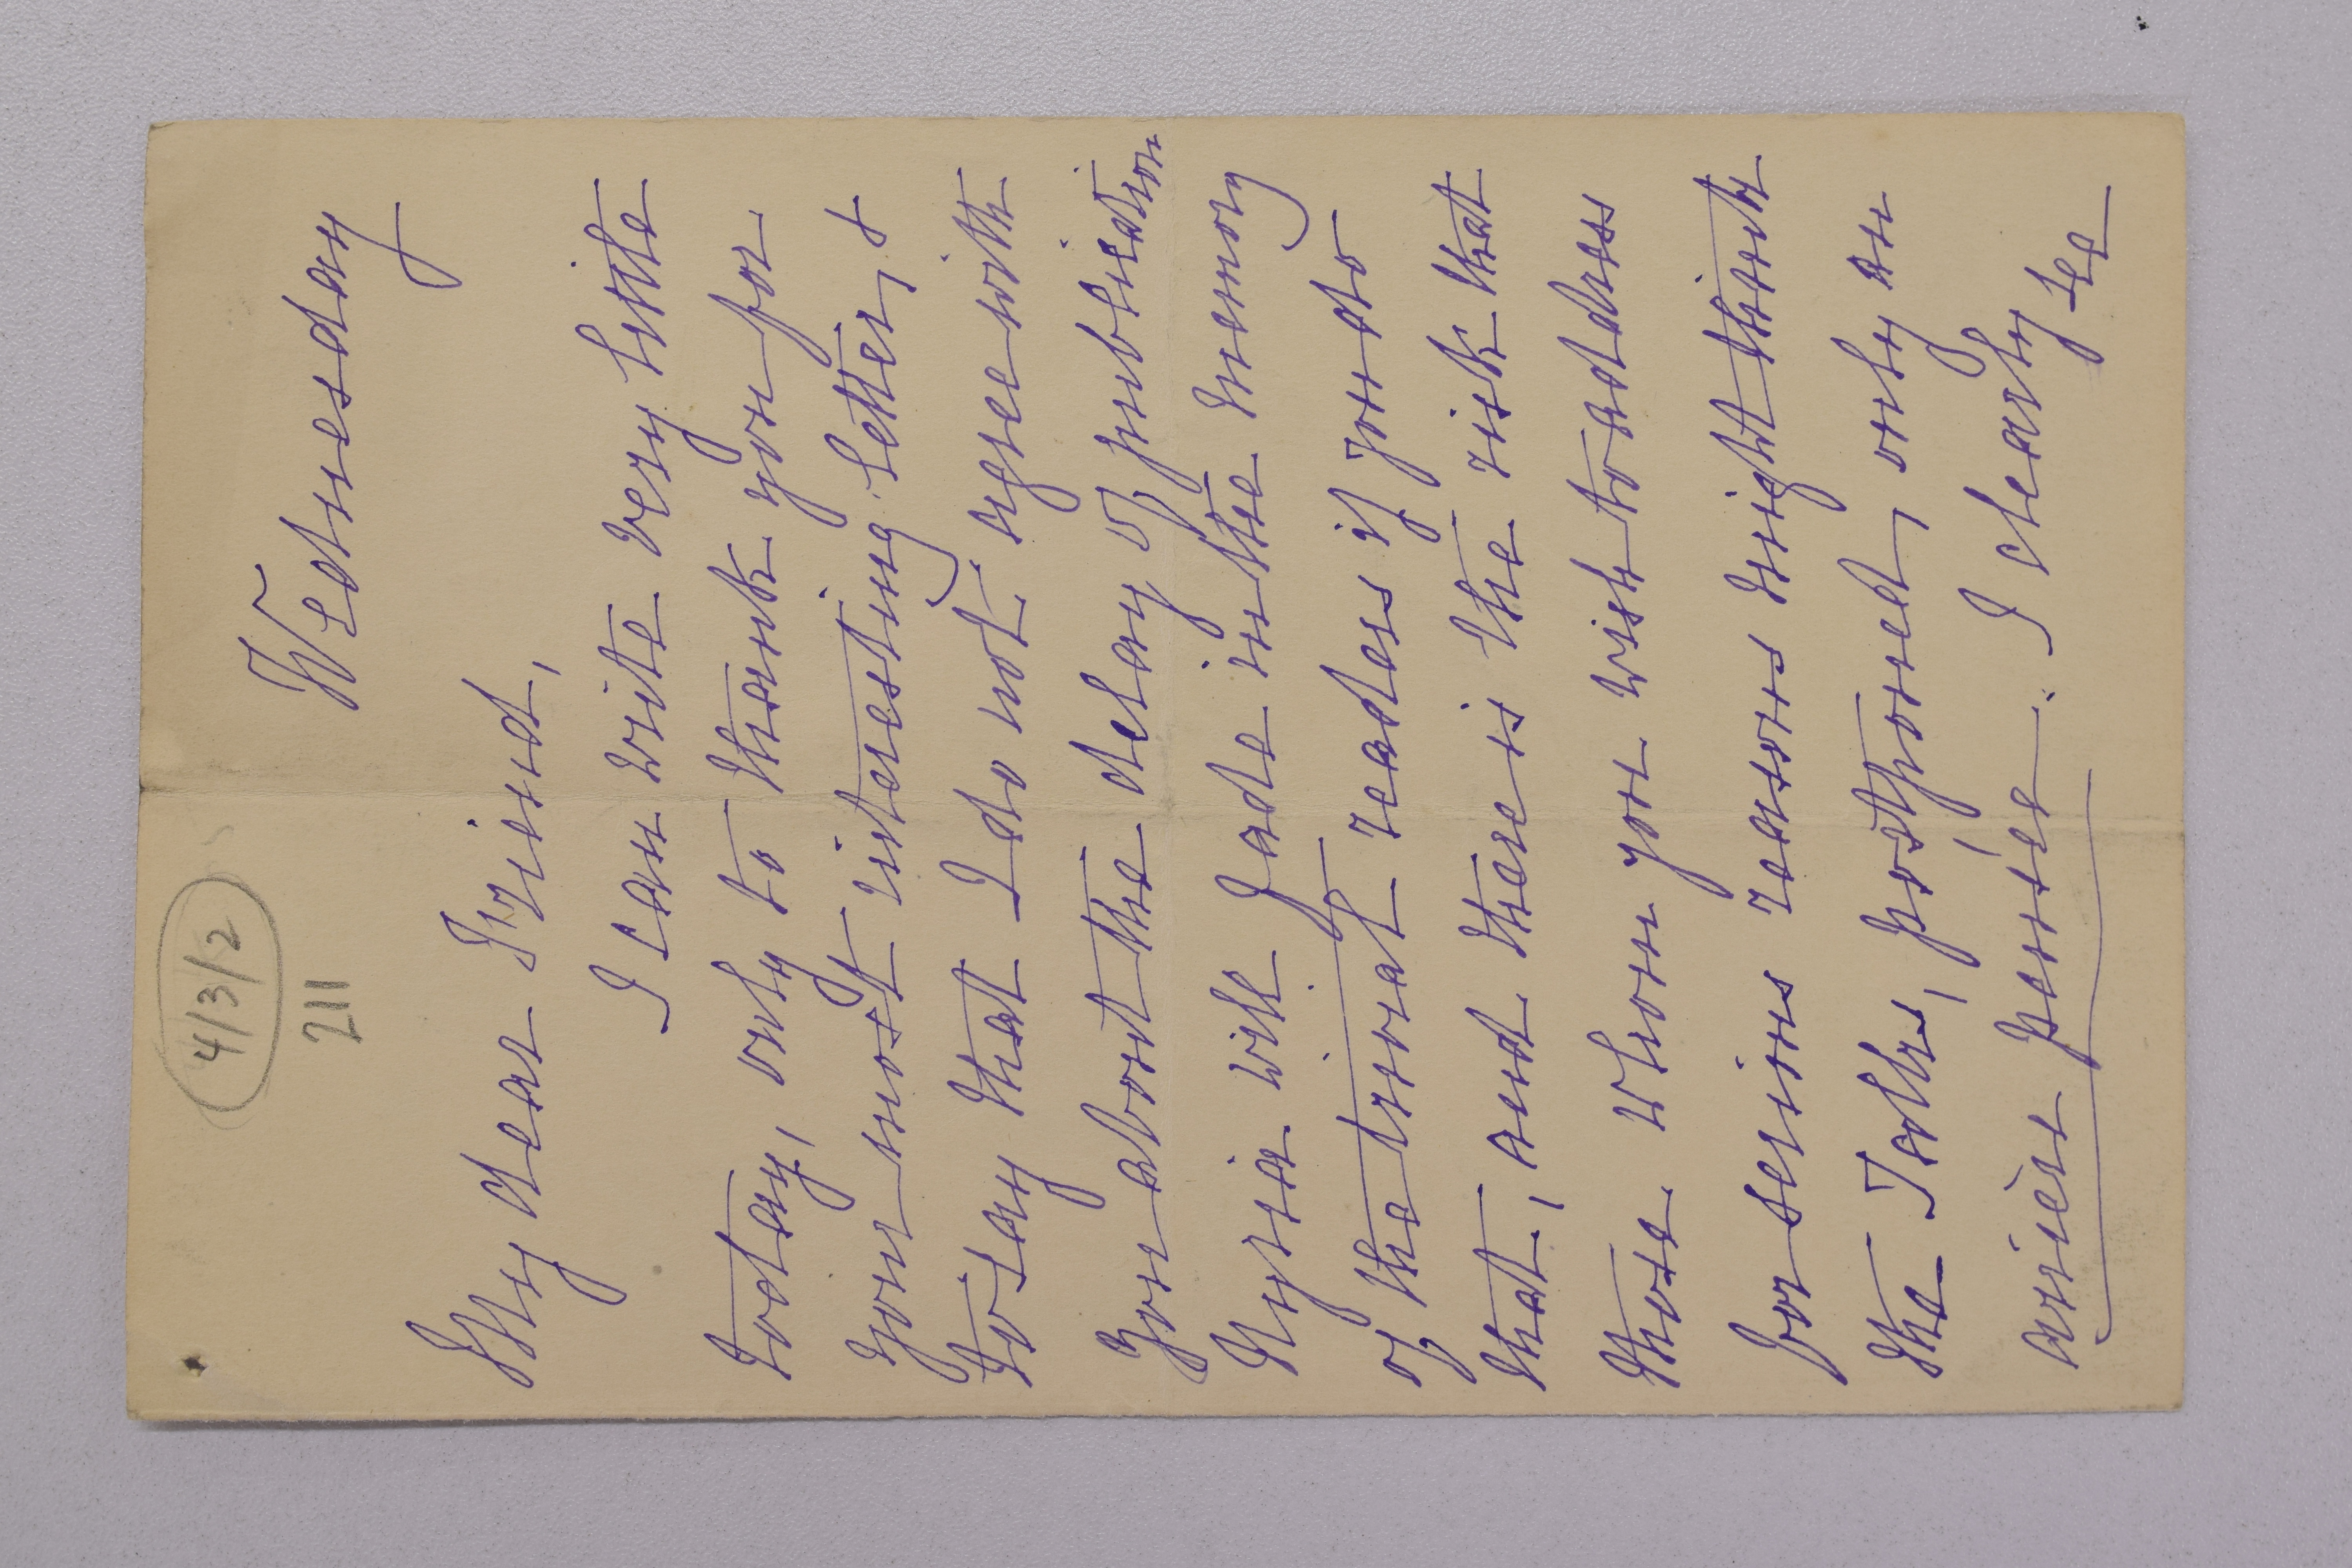 4/3/2
211
Wednesday
My dear Friend,
I can write very little
today, only to thank you for
your most interesting letter, &
to say that I do not agree with
you about the delay of publication
Nyria will fade in the memory
of the trivial readers if you do
that, and there is the risk that
those whom you wish to address
for serious reasons might think
the Talks, postponed, only an
arrière pensée. I clearly see